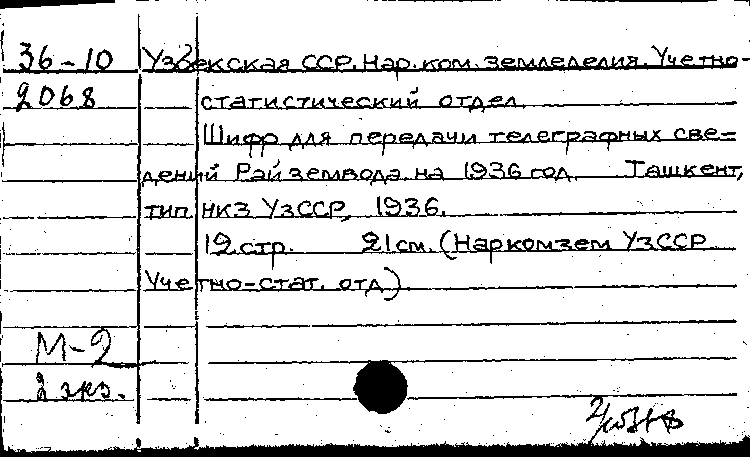 36-10 Узбекская ССР. Нар. ком. земледелия. Учетно-
2068 статистический отдел.
Шифр для передачи телеграфных све=
дений Райземвода на 1936 год. Ташкент,
тип НКЗ УзССР, 1936.
12 стр. 21 см. (Наркомзем УзССР
Учетно-стат. отд.).
М-2
2 экз.